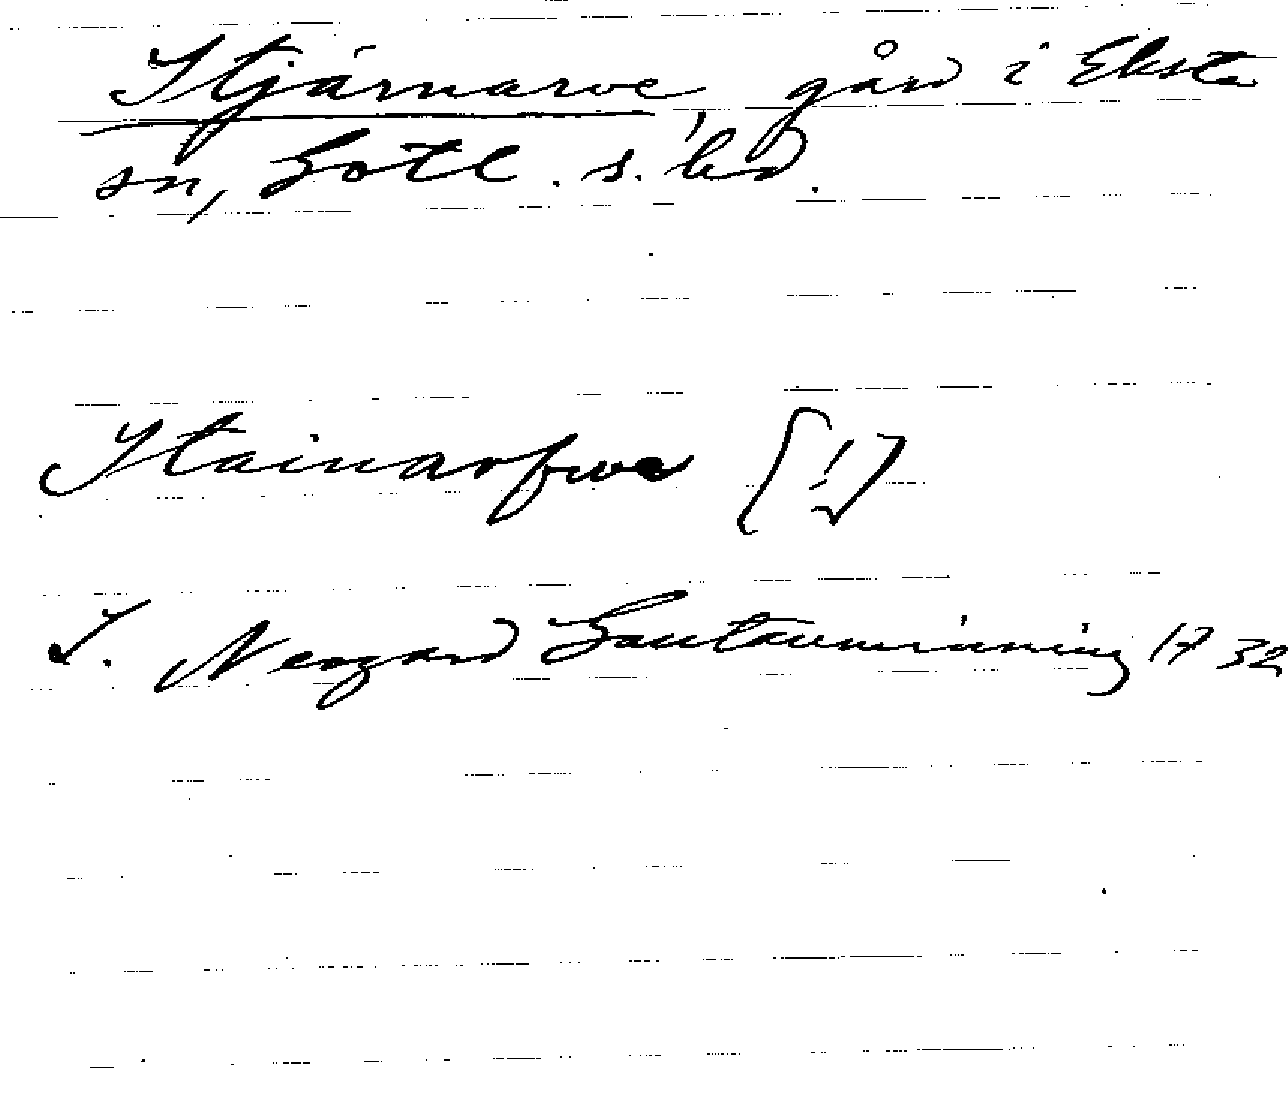 Stjärnarve, gård i Eksta
sn, Gotl. s. hd.
Stainarfwe [!]
J. Neogard Gautauminning 1732